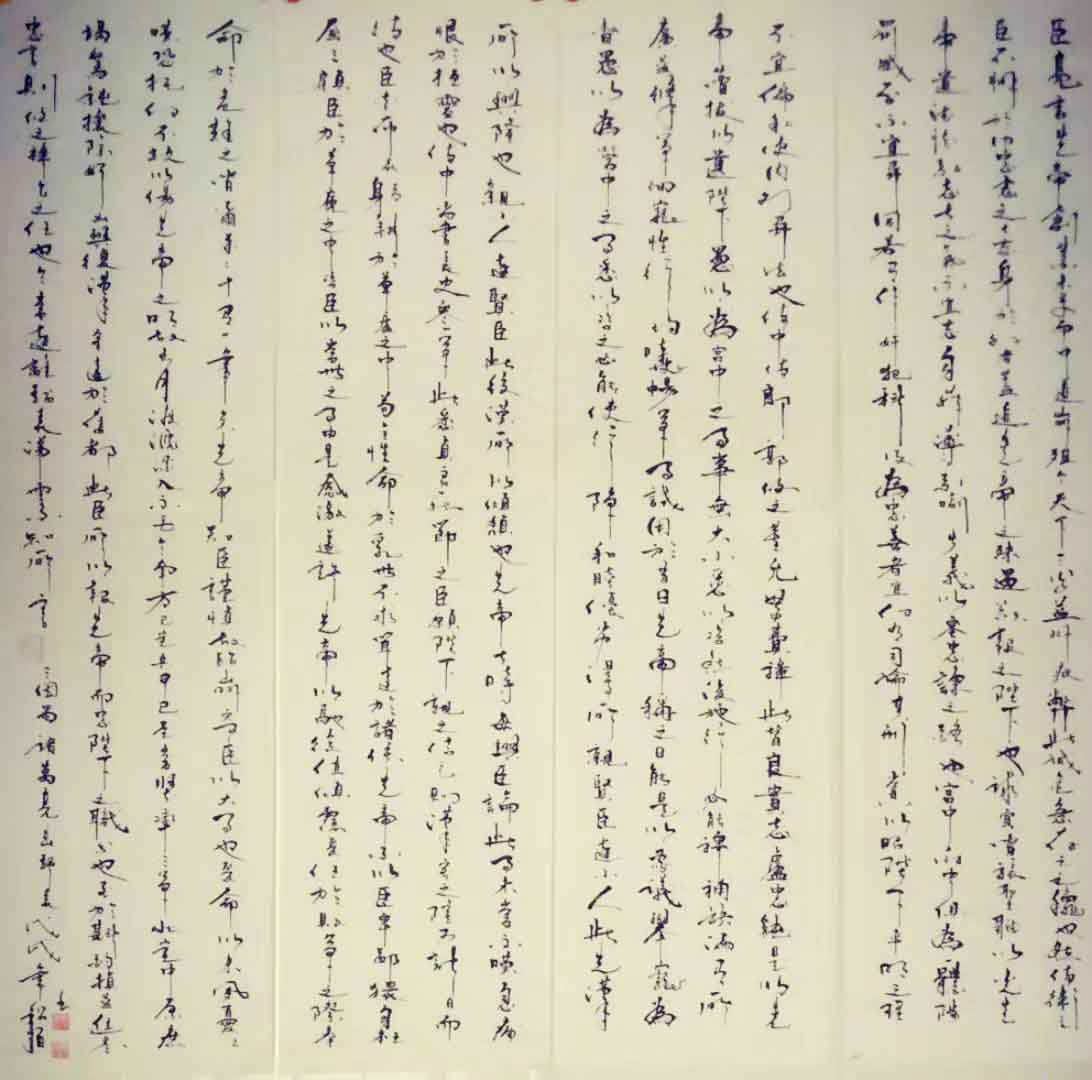 臣亮言先帝創業未半而中道崩殂今天下三分益州疲弊此誠危急存亡之秋也然侍衛之
臣不懈於内忠志之士忘身於外者蓋追先帝之殊遇欲報之陛下也誠宜開張聖聽以光先
帝遺德恢弘志士之氣不宜妄自菲薄引喻失義以塞忠諫之路也宮中府中俱為一體陟
罰臧否不宜異同若有作奸犯科及為忠善者宜付有司論其刑賞以昭陛下平明之理
不宜偏私使内外異法也侍中侍郎郭攸之董允等費禕此皆良實志慮忠純是以先
帝簡拔以遺陛下愚以為宮中之事事無大小悉以咨然後施行必能裨補闕漏有所
廣益將軍向寵性行均曉暢軍事試用於昔日先帝稱之曰能是以衆議舉寵為
督愚以為營中之事悉以咨之必能使行陣和睦優劣得所親賢臣遠小人此先漢
所以興隆也親小人遠賢臣此後漢所以傾頹也先帝在時每與臣論此事未嘗不嘆息痛
恨於桓靈也侍中尚書長史參軍此悉貞良死節之臣願陛下親之信之則漢室之隆可計日而
待也臣本布衣躬耕於草廬之中苟全性命於亂世不求聞達於諸侯先帝不以臣卑鄙猥自枉
屈三顧臣於草廬之中咨臣以當世之事由是感激遂許先帝以驅馳後值傾覆受任於敗軍之際奉
命於危難之間爾來二十有一年矣先帝知臣謹慎故臨崩寄臣以大事也受命以來夙夜憂
嘆恐托付不效以傷先帝之明故五月渡瀘深入不毛今南方已定兵甲已足當獎率三軍北定中原庶
竭駑鈍攘除奸凶興復漢室還於舊都此臣所以報先帝而忠陛下之職分也至於斟酌損益進盡
忠言則攸之禕允之任也今當遠離臨表涕零不知所言 三國蜀諸葛亮出師表